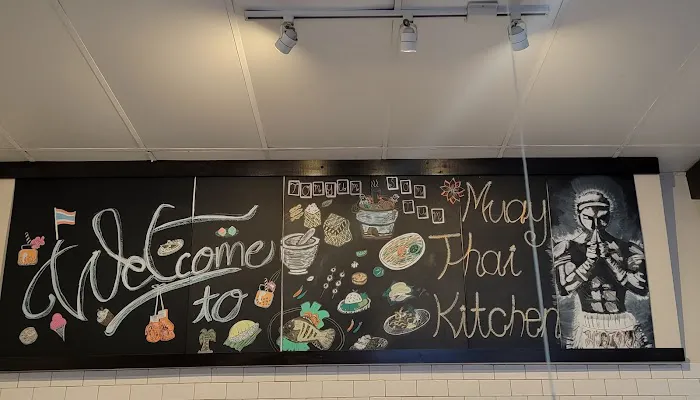 Welcome
to
Muay
Thai
Kitchen